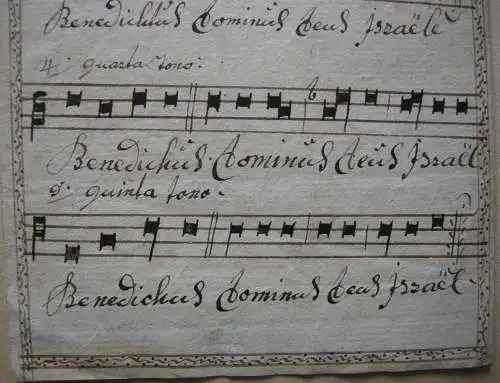 Benedictus Dominus Deus Israële
4: quarta tono:
Benedichus. Dominus Deus Israël
5: quinta tono.
Benedichus Dominus Deus israël.